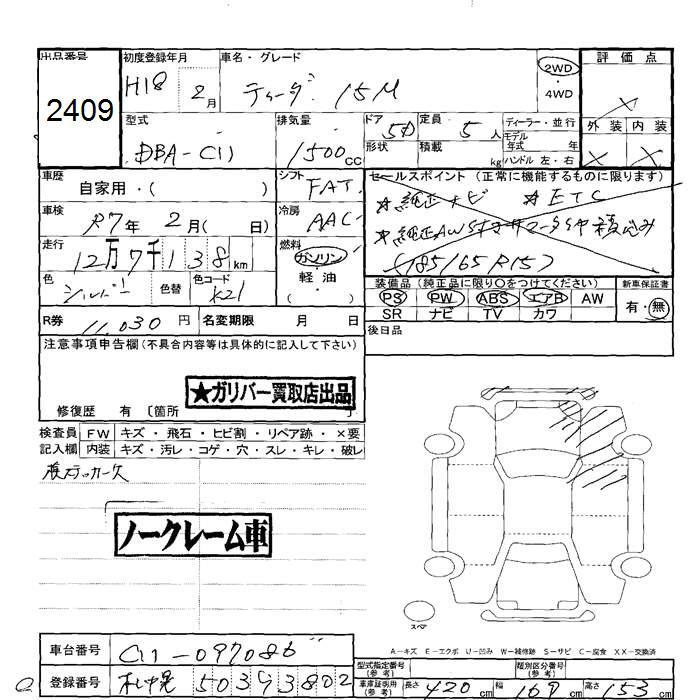 出品番号
2409
初度登録年月
H18 2月
車名・グレード
ティーダ 15M
2WD
4WD
評価点
×
外装 内装
× ×
型式
DBA-C11
排気量
1500cc
ドア 5D
形状
定員 5人
積載 kg
ディーラー・並行
モデル年式 年
ハンドル 左・右
車歴
自家用・( )
シフト
FAT
セールスポイント (正常に機能するものに限ります)
☆純正ナビ ☆ETC
☆純正AW
(185/65R15)
車検
R7年 2月( 日)
冷房
AAC
走行
12万7千138km
燃料
ガソリン
軽油
( ・ )
色
シルバー
色替
色コード
K21
装備品 (純正品に限り○をつけてください)
PS PW ABS エアB AW
SR ナビ TV カワ
新車保証書
有・無
R券 11,030円 名変期限 月 日
後日品
注意事項申告欄(不具合内容等は具体的に記入して下さい)
★ガリバー買取店出品
修復歴 有 〔箇所
検査員記入欄
FW キズ・飛石・ヒビ割・リペア跡・×要
内装 キズ・汚レ・コゲ・穴・スレ・キレ・破レ
ノークレーム車
スペア
A-キズ E-エクボ U-凹み W-補修跡 S-サビ C-腐食 XX-交換済
車台番号 C11-097086
登録番号 札幌 503 ろ 3802
型式指定番号(参考)
類別区分番号(参考)
車庫証明用(参考) 長さ 420cm 幅 169cm 高さ 153cm